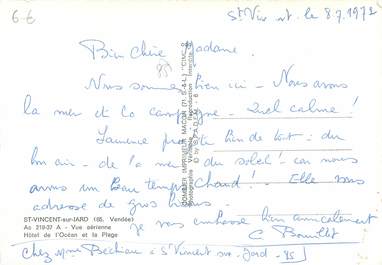 6€
St Vincent. le 8.7.1972
Bien chère Madame.
Nous sommes bien ici - Nous avons
la mer et la campagne - Quel calme !
Laurence profite bien de tout : du
bon air - de la mer du soleil ! car nous
avons un beau temps chaud ! - Elle vous
adresse de gros bisous.
je vous embrasse bien amicalement
C. Bouillot
ST-VINCENT-sur-JARD (85. Vendée)
As 219-37 A - Vue aérienne
Hôtel de l'Océan et la Plage
chez Mme Bechiau à St Vincent sur Jard - 85
COMBIER IMPRIMEUR MACON (71. S.-&-L.) "CIM"
Photographie Véritable - Reproduction Interdite